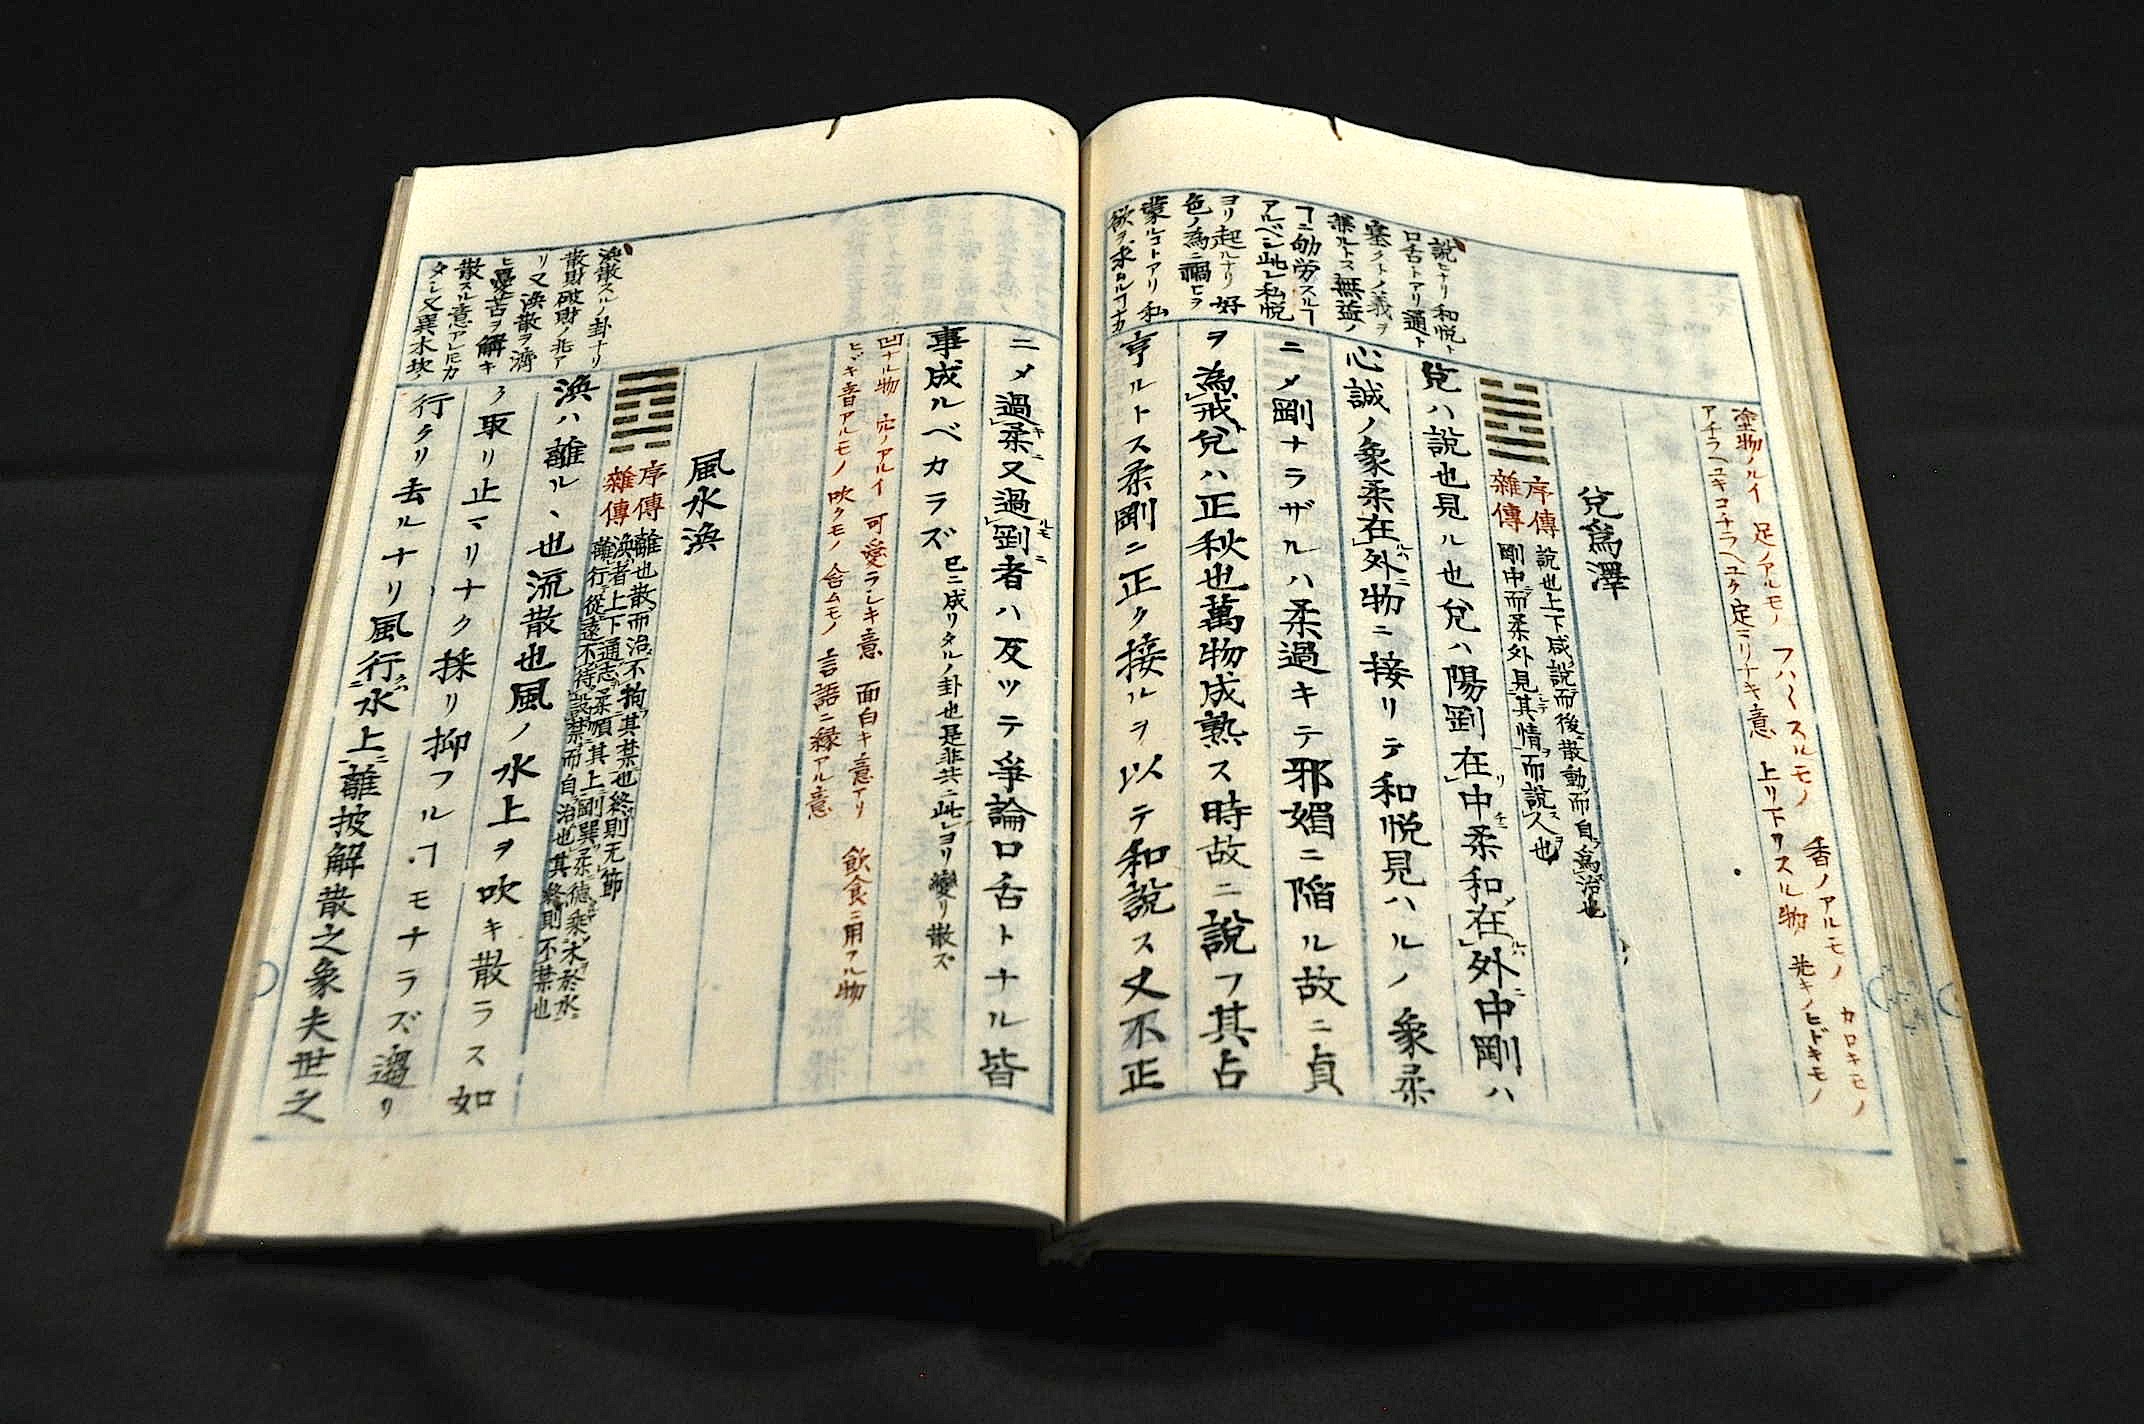 塗物ノルイ 足ノアルモノ フハ〱スルモノ 香ノアルモノ カロキモノ
アチラヘユキコチラヘユク定マリナキ意 上リ下リスル物 先キノヒドキモノ
兌爲澤
序傳 說也上下咸說而後散動而自爲治也
雜傳 剛中而柔外見其情而說人也
兌ハ説也見ル也兌ハ陽剛在中柔和在外中剛ハ
心誠ノ象柔在外物ニ接リテ和悦見ハルノ象柔
ニメ剛ナラザルハ柔過キテ邪媚ニ陥ル故ニ貞
ヲ為戒兌ハ正秋也萬物成熟ス時故ニ説フ其占
亨ルトス柔剛ニ正ク接ルヲ以テ和説ス又不正
説ヒナリ和悦ト
口舌トアリ通ト
塞クトノ義ヲ
兼ルトス無益ノ
ヿニ劬労スルヿ
アルベシ此レ私悦
ヨリ起ルナリ好
色ノ為ニ禍ヒヲ
蒙ルコトアリ私
欲ヲ求ルヿナカ
ニメ過柔又過剛者ハ反ツテ爭論口舌トナル皆
事成ルベカラズ 已ニ成リタルノ卦也是非共ニ此ヨリ變リ散ズ
凹ナル物 穴ノアルイ 可愛ラシキ意 面白キ意アリ 飲食ニ用フル物
ヒヾキ音アルモノ 吹クモノ 含ムモノ 言語ニ縁アル意
風水渙
序傳 離也散而治不拘其禁也終則无節
雜傳 渙者上下通志柔順其上剛巽柔德乘木於水
離行從遠不待設禁而自治也其終則不禁也
渙ハ離ルヽ也流散也風ノ水上ヲ吹キ散ラス如
ク取リ止マリナク採リ抑フルヿモナラズ過リ
行クリ去ルナリ風行水上離披解散之象夫世之
渙散スルノ卦ナリ
散財破財ノ兆ア
リ又渙散ヲ濟
ヒ憂苦ヲ解キ
散スル意アレ𪜈カ
タシ又巽木坎